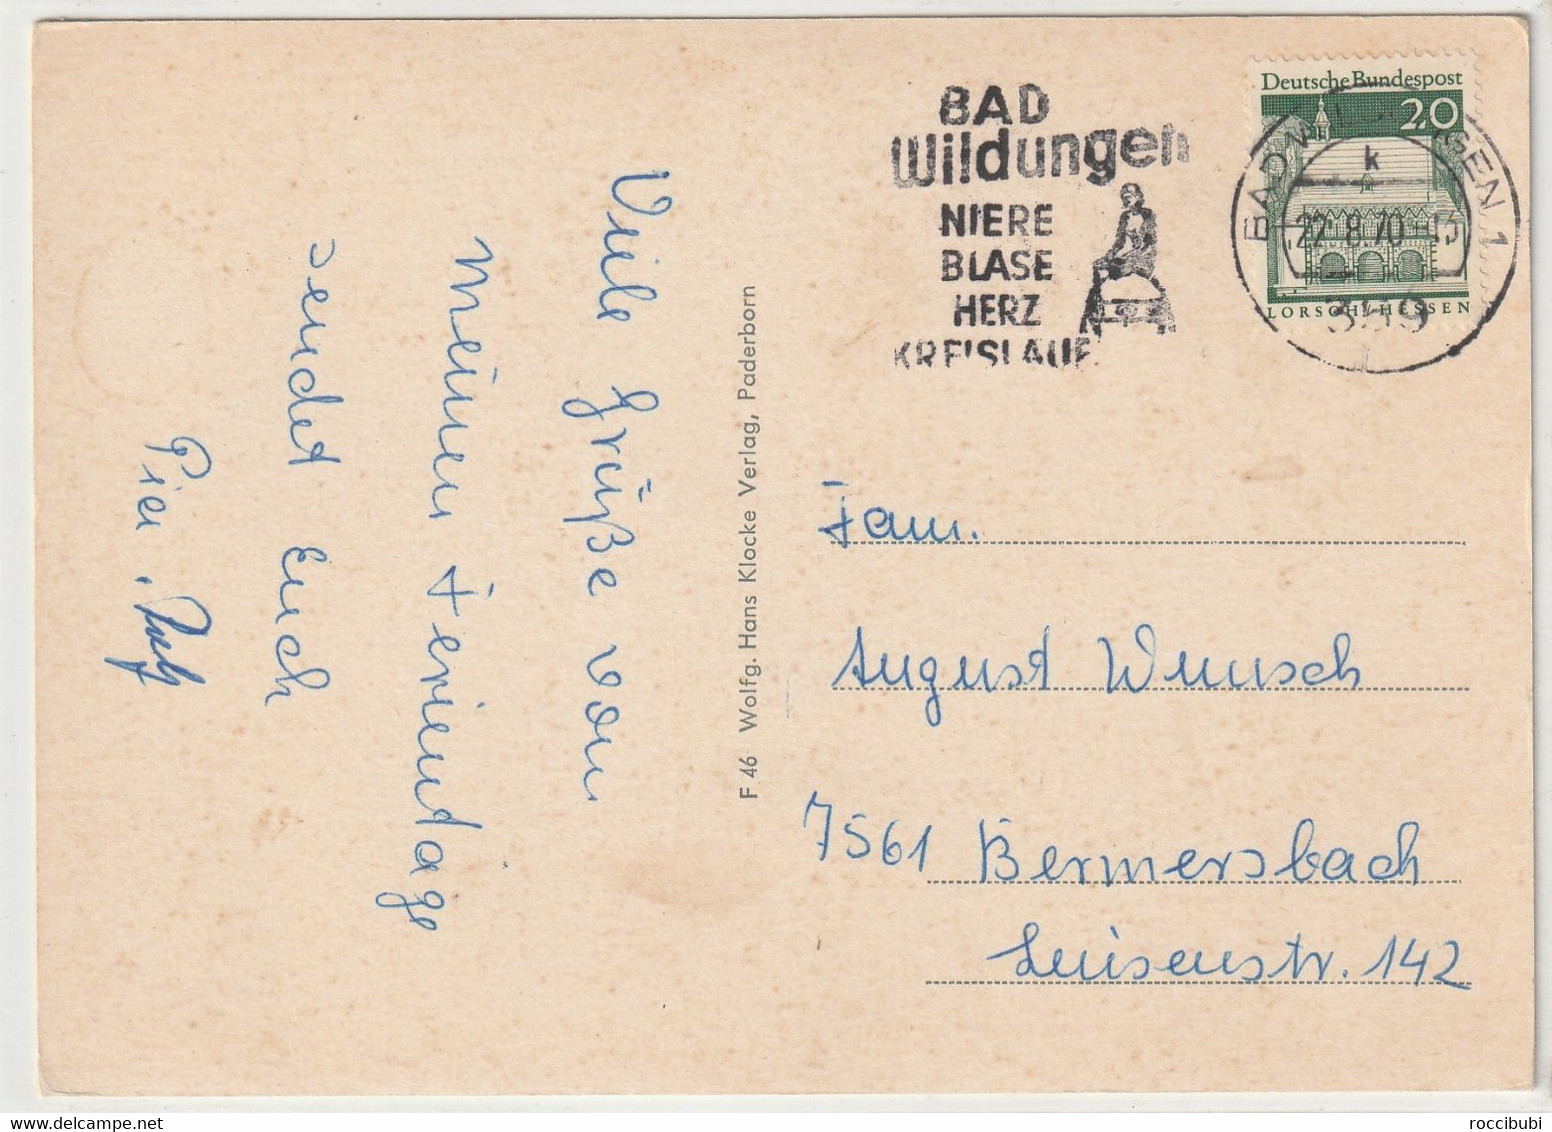 Viele Grüße von
meinen Ferientage
sendet Euch
F 46 Wolfg. Hans Klocke Verlag, Paderborn
BAD
Wildungen
NIERE
BLASE
HERZ
KREISLAUF
Deutsche Bundespost
20
LORSCH/HESSEN
BAD WILDUNGEN 1
k
22.8.70-13
359
Fam.
August Wunsch
7561 Bermersbach
Luisenstr. 142
roccibubi